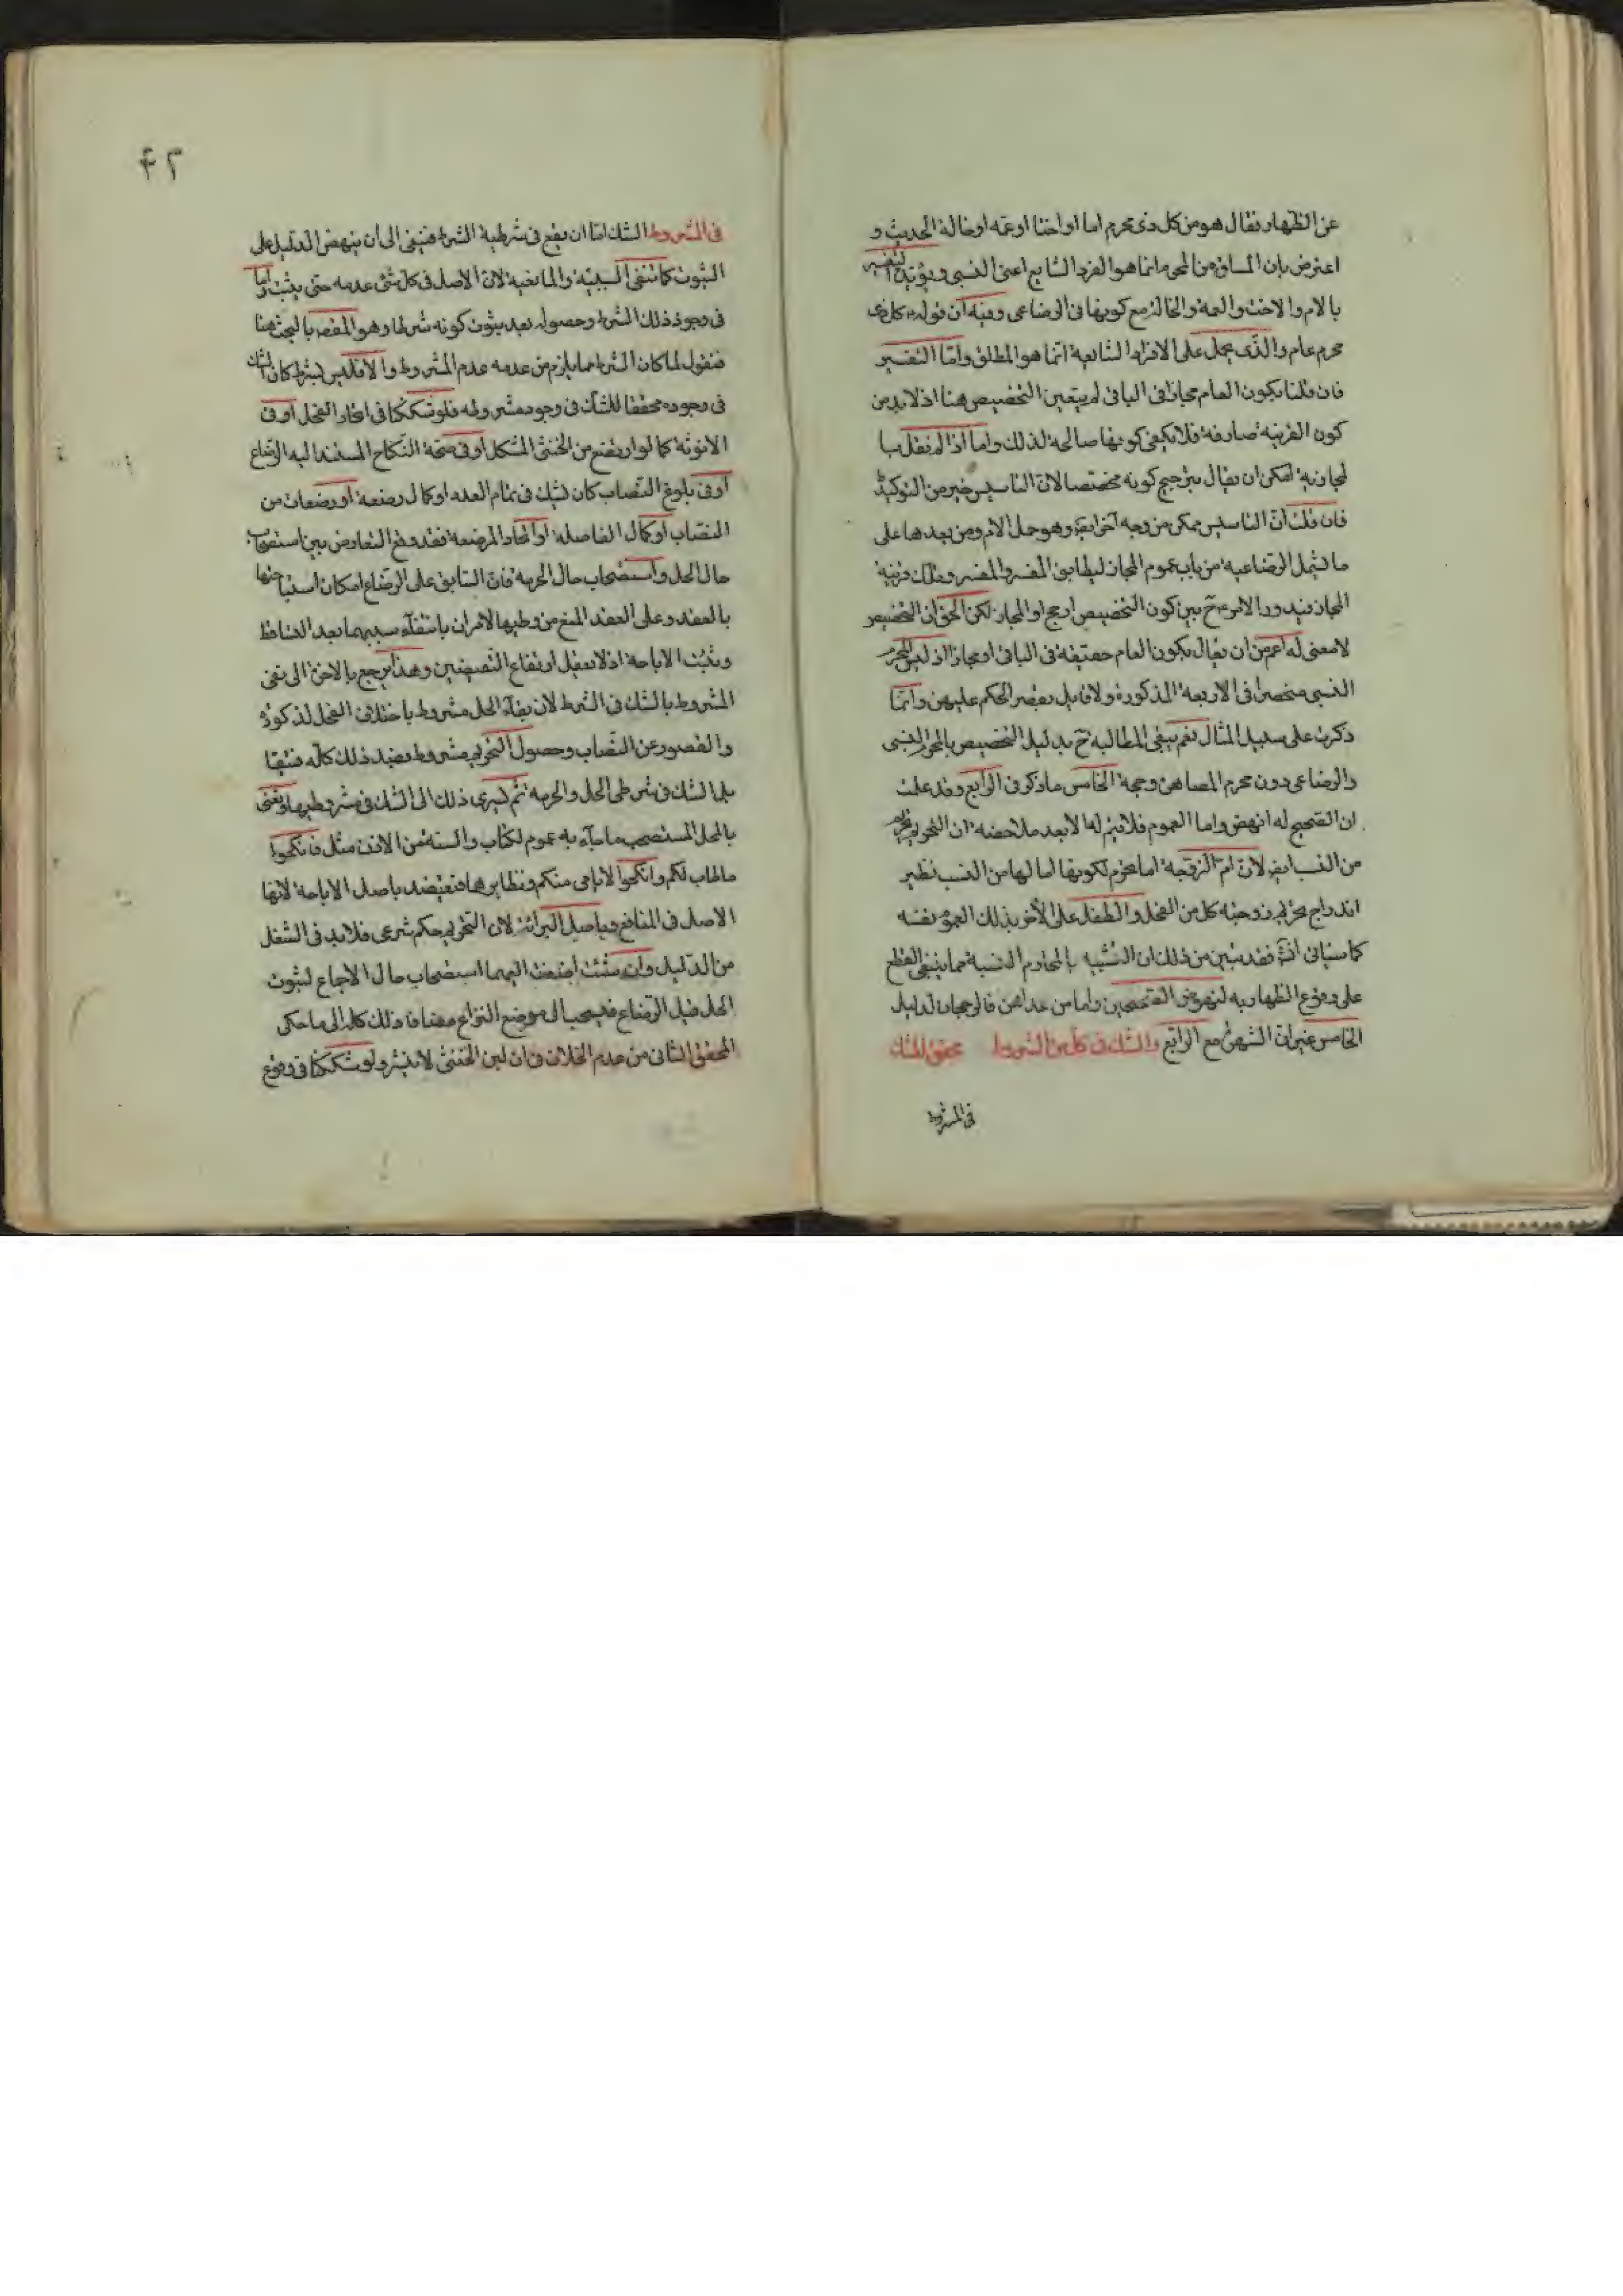 عن الظهار فقال هو من كل ذى محرم اما او اختا او عمه او خالة الحديث و
اعترض بان المساق من المحرم انما هو الفرد الشايع اعنى النسبى ويؤيده التفسير
بالام والاخت والعمه والخالة مع كونها فى الرضاعى وفيه ان قوله كل ذى
محرم عام والذى يحمل على الافراد الشايعة انما هو المطلق واما التفسير
فان قلنا بكون العام مجازا فى الباقى لم يتعين التخصيص هنا اذ لابد من
كون القرينة صارفة فلا يكفى كونها صالحة لذلك واما اذا لم نقل بـ
لمجازية امكن ان يقال بترجيح كونه مخصصا لان التاسيس خير من التوكيد
فان قلت ان التاسيس ممكن من وجه آخر ايضا وهو حمل الام ومن بعدها على
ما يشمل الرضاعيه من باب عموم المجاز ليطابق المفسر والمفسر وتلك قرينة
المجاز فيدور الامر ح بين كون التخصيص ارجح او المجاز لكن الحق ان التخصيص
لا معنى له اعم من ان يقال بكون العام حقيقة فى الباقى او مجازا اذ ليس المحرم
النسبى منحصرا فى الاربعة المذكورة ولا قايل بقصر الحكم عليهن وانما
ذكرت على سبيل المثال نعم يبقى المطالبة ح بدليل التخصيص بالمحرم النسبى
والرضاعى دون محرم المصاهرة وحجة الخامس ما ذكر فى الرابع وقد علمت
ان الصحيح له انهض واما العموم فلا يتم لها الا بعد ملاحضة ان التحريم
من النسب ايضا لان ام الزوجة اما محرم لكونها اما لها من النسب نظير
اندراج تحريم زوجة كل من الفحل والطفل على الآخر بذلك العموم نفسه
كما سياتى فقد تبين من ذلك ان التشبيه بالمحارم النسبية مما ينبغى القطع
على وقوع الظهار به لنهوض الصحيحين واما من عداهن فالرجحان لدليل
الخامس غير ان الشهرة مع الرابع والشك فى كل من الشروط محقق للشك
فى المشروط
۴۲
فى المشروط الشك اما ان يقع فى شرطية الشرط فينفى الى ان ينهض الدليل على
الثبوت كما تنفى السببية والمانعية لان الاصل فى كل شئ عدمه حتى يثبت واما
فى وجود ذلك الشرط وحصوله بعد ثبوت كونه شرطا وهو المقصد بالبحث هنا
فنقول لما كان الشرط مما يلزم من عدمه عدم المشروط والا فليس بشرط كان الشك
فى وجوده محققا للشك فى وجود مشروطه فلو شككنا فى اتحاد الفحل او فى
الانوثة كما لو ارتضع من الخنثى المشكل او فى صحة النكاح المستند اليه الرضاع
او فى بلوغ النصاب كان يشك فى تمام العدد او كمال رضعة او رضعات من
النصاب او كمال الفاصله او اتحاد المرضعة فقد وقع التعارض بين استصحاب
حال الحل واستصحاب حال الحرمة فان السابق على الرضاع امكان
بالعقد وعلى العقد المنع من وطيها الامران بانتفاء سببهما بعد التساقط
وتثبت الاباحة اذ لا يعقل ارتفاع النقيضين وهذا يرجع بالاخرة الى نفى
المشروط بالشك فى الشرط لان بقاء الحل مشروط باختلاف الفحل لذكوره
والقصور عن النصاب وحصول التحريم مشروط بضد ذلك كله
بلى الشك فى شرطى الحل والحرمة ثم يسرى ذلك الى الشك فى مشروطيهما ونعنى
بالحل المستصحب ما جاء به عموم الكتاب والسنة من الاذن مثل فانكحوا
ما طاب لكم وانكحوا الايامى منكم ونظايرها فتعتضد باصل الاباحة لانها
الاصل فى المنافع وباصل البرائة لان التحريم حكم شرعى فلابد فى الشغل
من الدليل وان شئت اضفت اليهما استصحاب حال الاجماع لثبوت
الحل قبل الرضاع فيسحب الى موضع النزاع مضافا ذلك كله الى ما حكى
المحقق الثانى من عدم الخلاف فى ان لبن الخنثى لا ينشر ولو شككنا فى وقوع